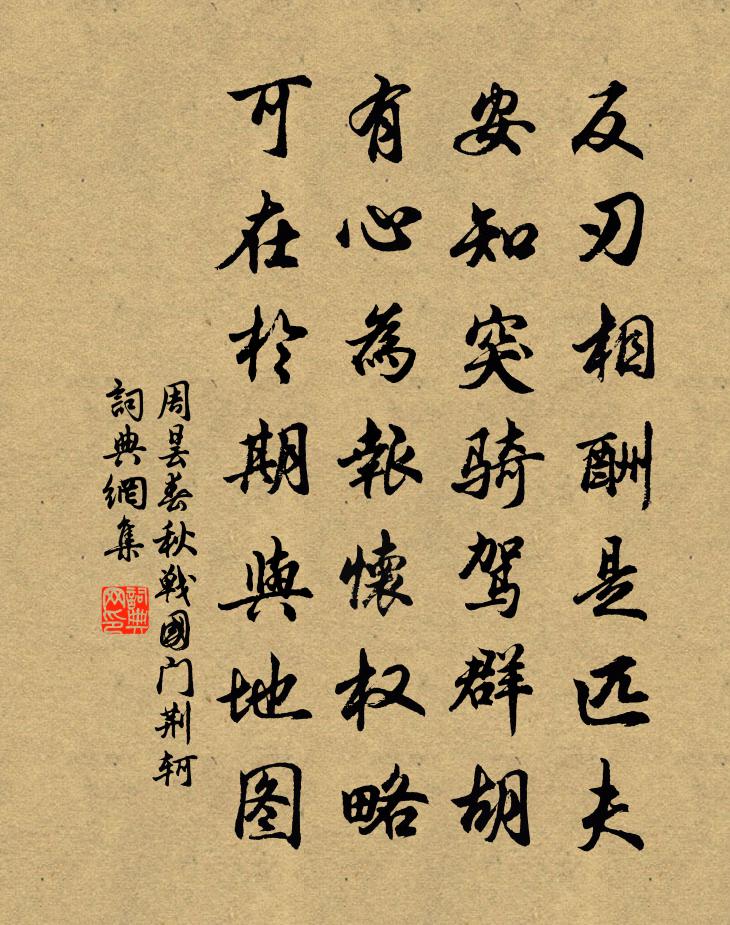 反刃相酬是匹夫
安知突骑驾群胡
有心為報懷权略
可在於期與地图
周昙春秋戦國门荆轲
詞典網集
詞典網印